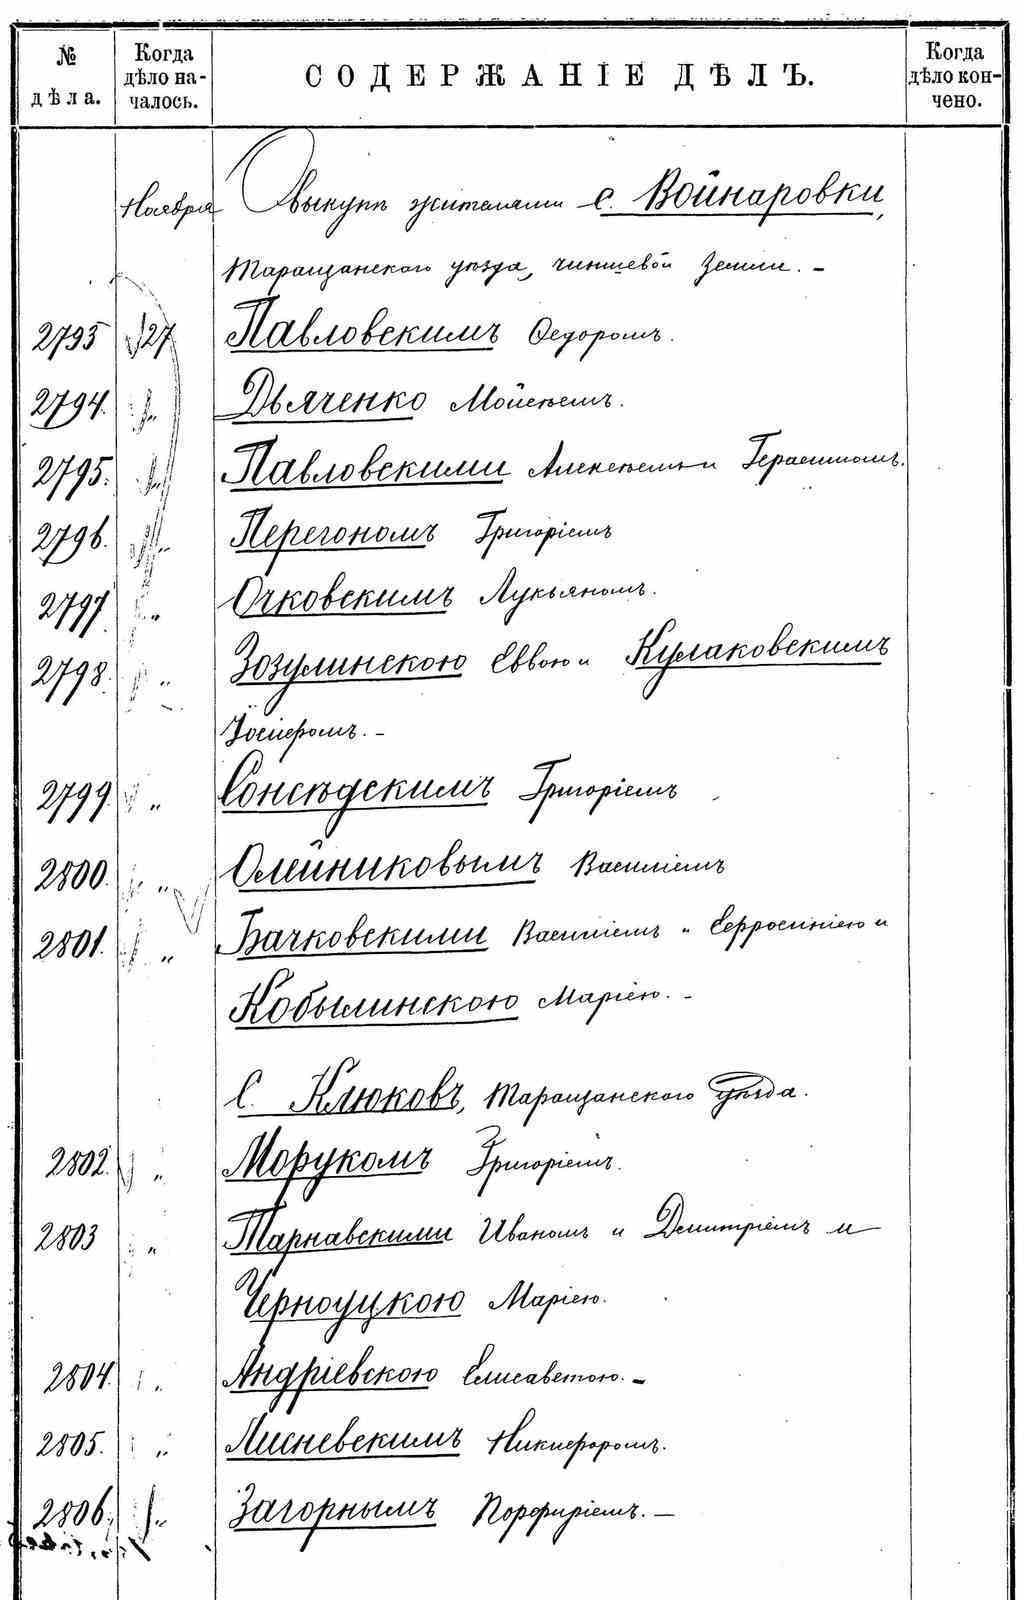 № дѣла.
Когда дѣло на-чалось.
СОДЕРЖАНІЕ ДѢЛЪ.
Когда дѣло кон-чено.
Ноября О выкупѣ жителями с. Войнаровки,
Таращанского уѣзда, чиншевой земли. –
2793 27 Павловскимъ Ѳедоромъ.
2794. „ Дьяченко Мойсеемъ.
2795. „ Павловскими Алексѣемъ и Герасимомъ.
2796. „ Перегономъ Григоріемъ
2797 „ Очковскимъ Лукьяномъ.
2798. „ Зозулинскою Еввою и Кулаковскимъ
Іосифомъ. –
2799. „ Сонсѣдскимъ Григоріемъ
2800. „ Олейниковымъ Василіемъ
2801. „ Бачковскими Василіемъ и Евфросиніею и
Кобылинскою Маріею. –
С. Клюковъ, Таращанского уѣзда.
2802. „ Моруком Григоріемъ.
2803 „ Тарнавскими Иваномъ и Дмитріемъ и
Черноуцкою Маріею.
2804. „ Андріевскою Елисаветою. –
2805. „ Лисневскимъ Никифоромъ.
2806. „ Загорнымъ Порфиріемъ. –